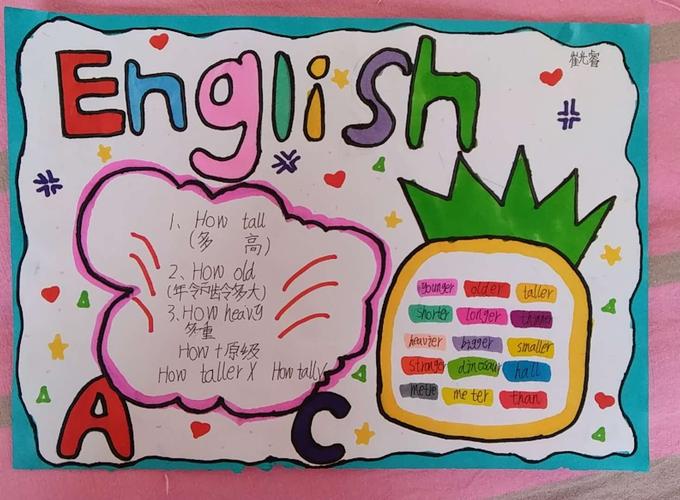 English
崔光睿
1、How tall
(多 高)
2、How old
(年令年龄多大)
3、How heavy
多重
How+原级
How taller X How tally
younger older taller
shorter longer thinner
heavier bigger smaller
stronger dinosaur hall
metre meter than
A C